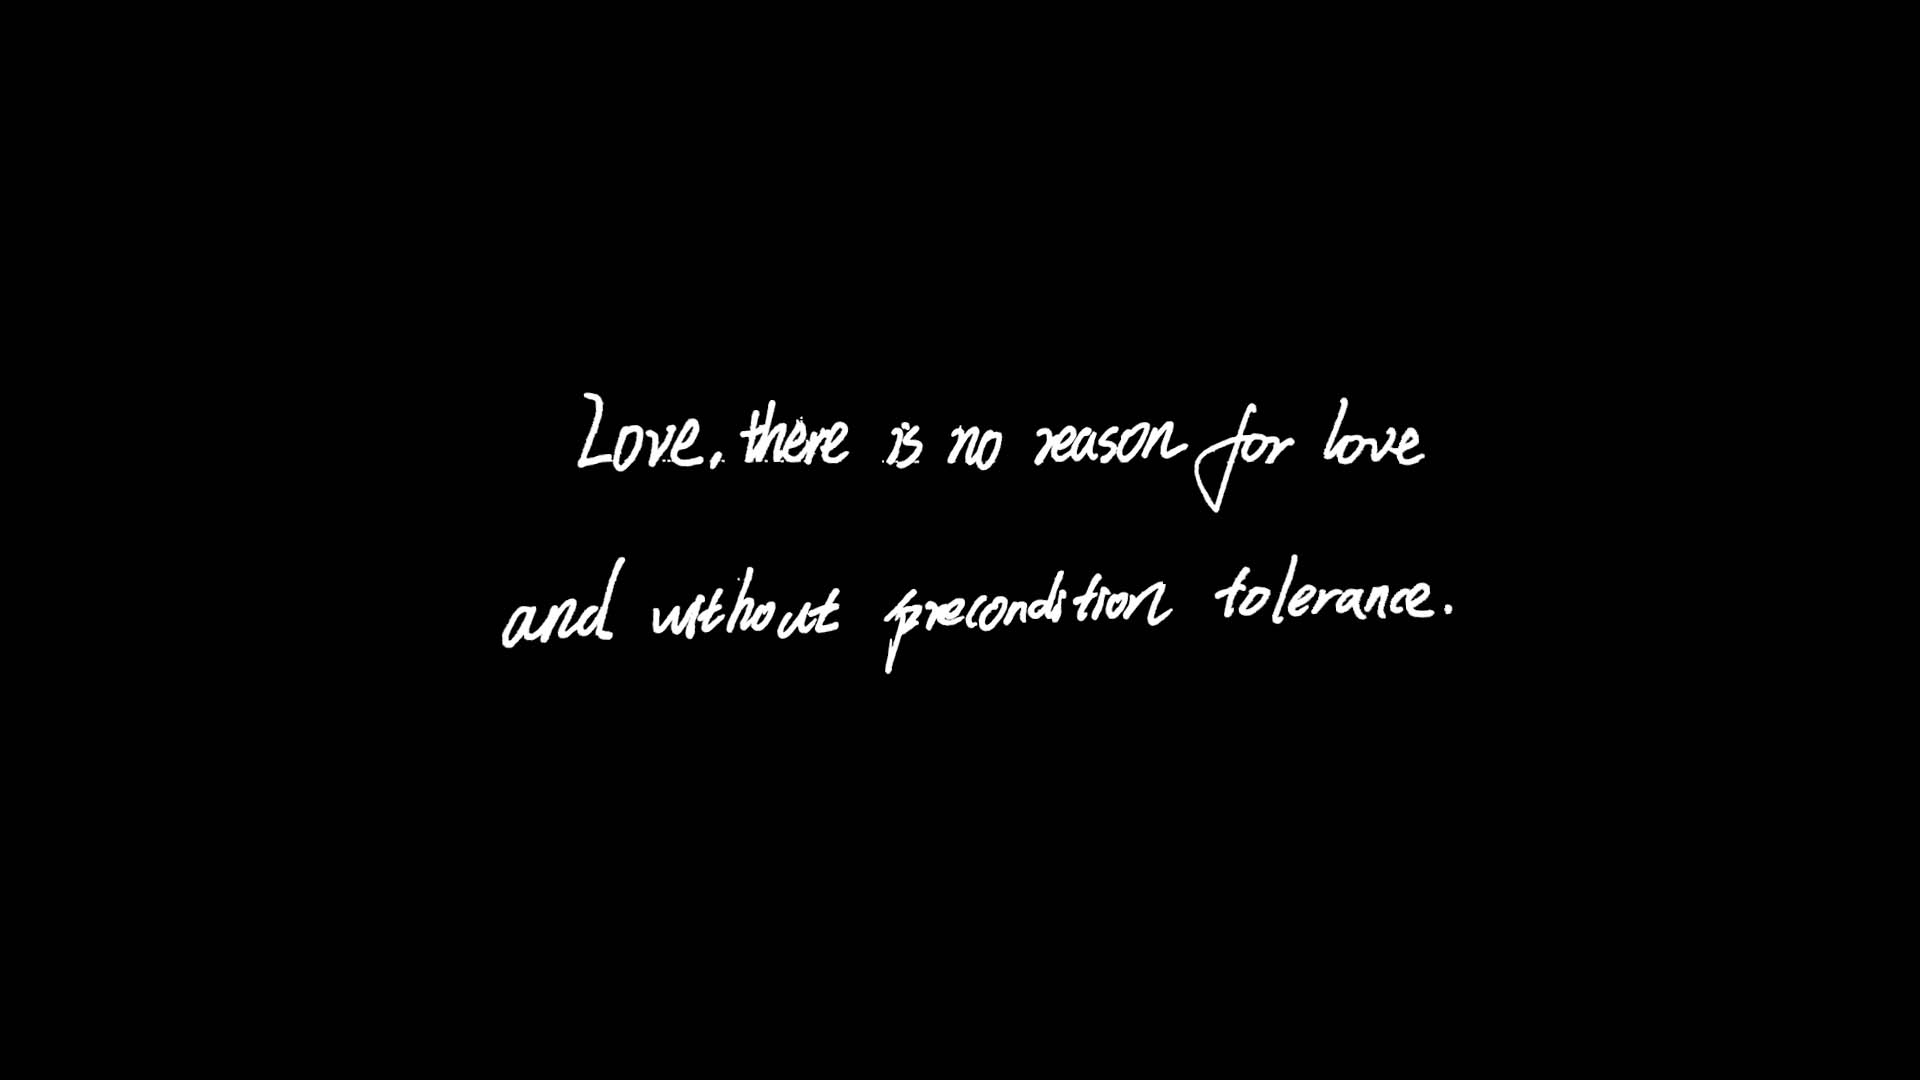 Love, there is no reason for love
and without precondition tolerance.